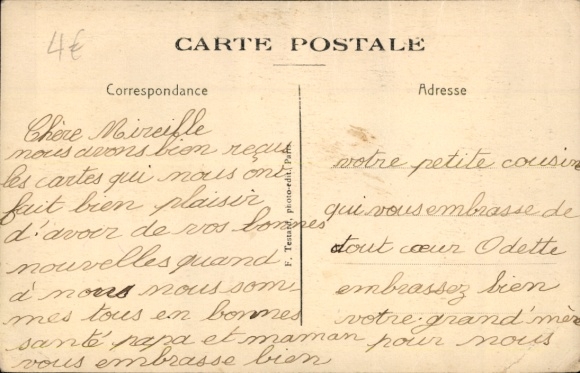 4€
CARTE POSTALE
Correspondance
Chère Mireille
nous avons bien reçus
les cartes qui nous ont
fait bien plaisir
d'avoir de vos bonnes
nouvelles quand
à nous nous som
mes tous en bonnes
santé papa et maman
vous embrasse bien
F. Testard, photo-édit. Paris
Adresse
votre petite cousine
qui vous embrasse de
tout cœur Odette
embrassez bien
votre grand'mère
pour nous